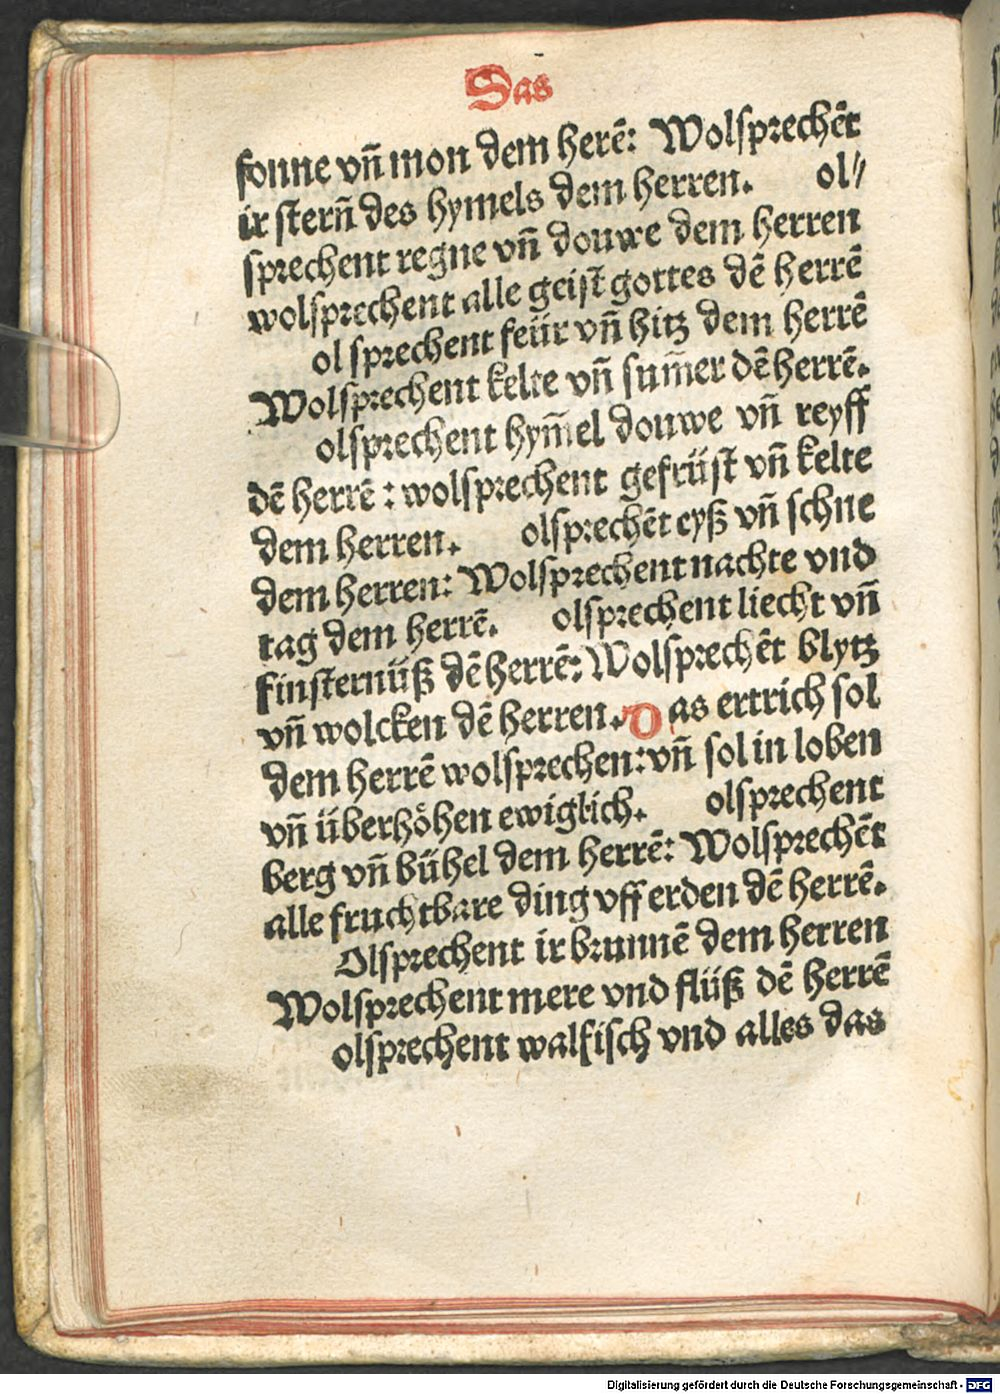 Das
sonne vñ mon dem herē: Wolsprechēt
ir sterñ des hymels dem herren. ol⸗
sprechent regne vñ douwe dem herren
wolsprechent alle geist gottes dē herrē
ol sprechent feür vñ hitz dem herrē
Wolsprechent kelte vñ sum̄er dē herrē.
olsprechent hym̄el douwe vñ reyff
dē herrē : wolsprechent gefrüst vñ kelte
dem herren. olsprechēt eyß vñ schne
dem herren: Wolsprechent nachte vnd
tag dem herrē. olsprechent liecht vñ
finsternüß dē herrē: Wolsprechēt blytz
vñ wolcken dē herren. Das ertrich sol
dem herrē wolsprechen: vñ sol in loben
vñ überhöhen ewigklich. olsprechent
berg vñ bühel dem herrē: Wolsprechēt
alle fruchtbare ding vff erden dē herrē.
Olsprechent ir brunnē dem herren
Wolsprechent mere vnd flüß dē herrē
olsprechent walfisch vnd alles das
Digitalisierung gefördert durch die Deutsche Forschungsgemeinschaft - DFG